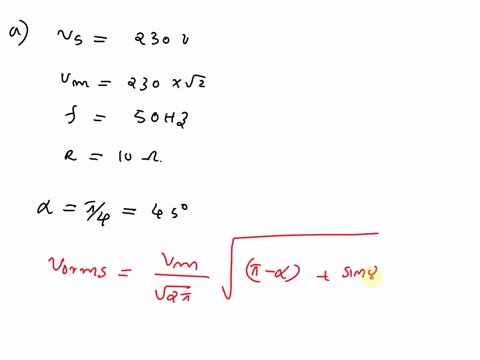 a) Vs = 230 V
Vm = 230 x √2
f = 50Hz
R = 10 Ω.
α = π/4 = 45°
Vorms = Vm/√2π √(π-α) + sin